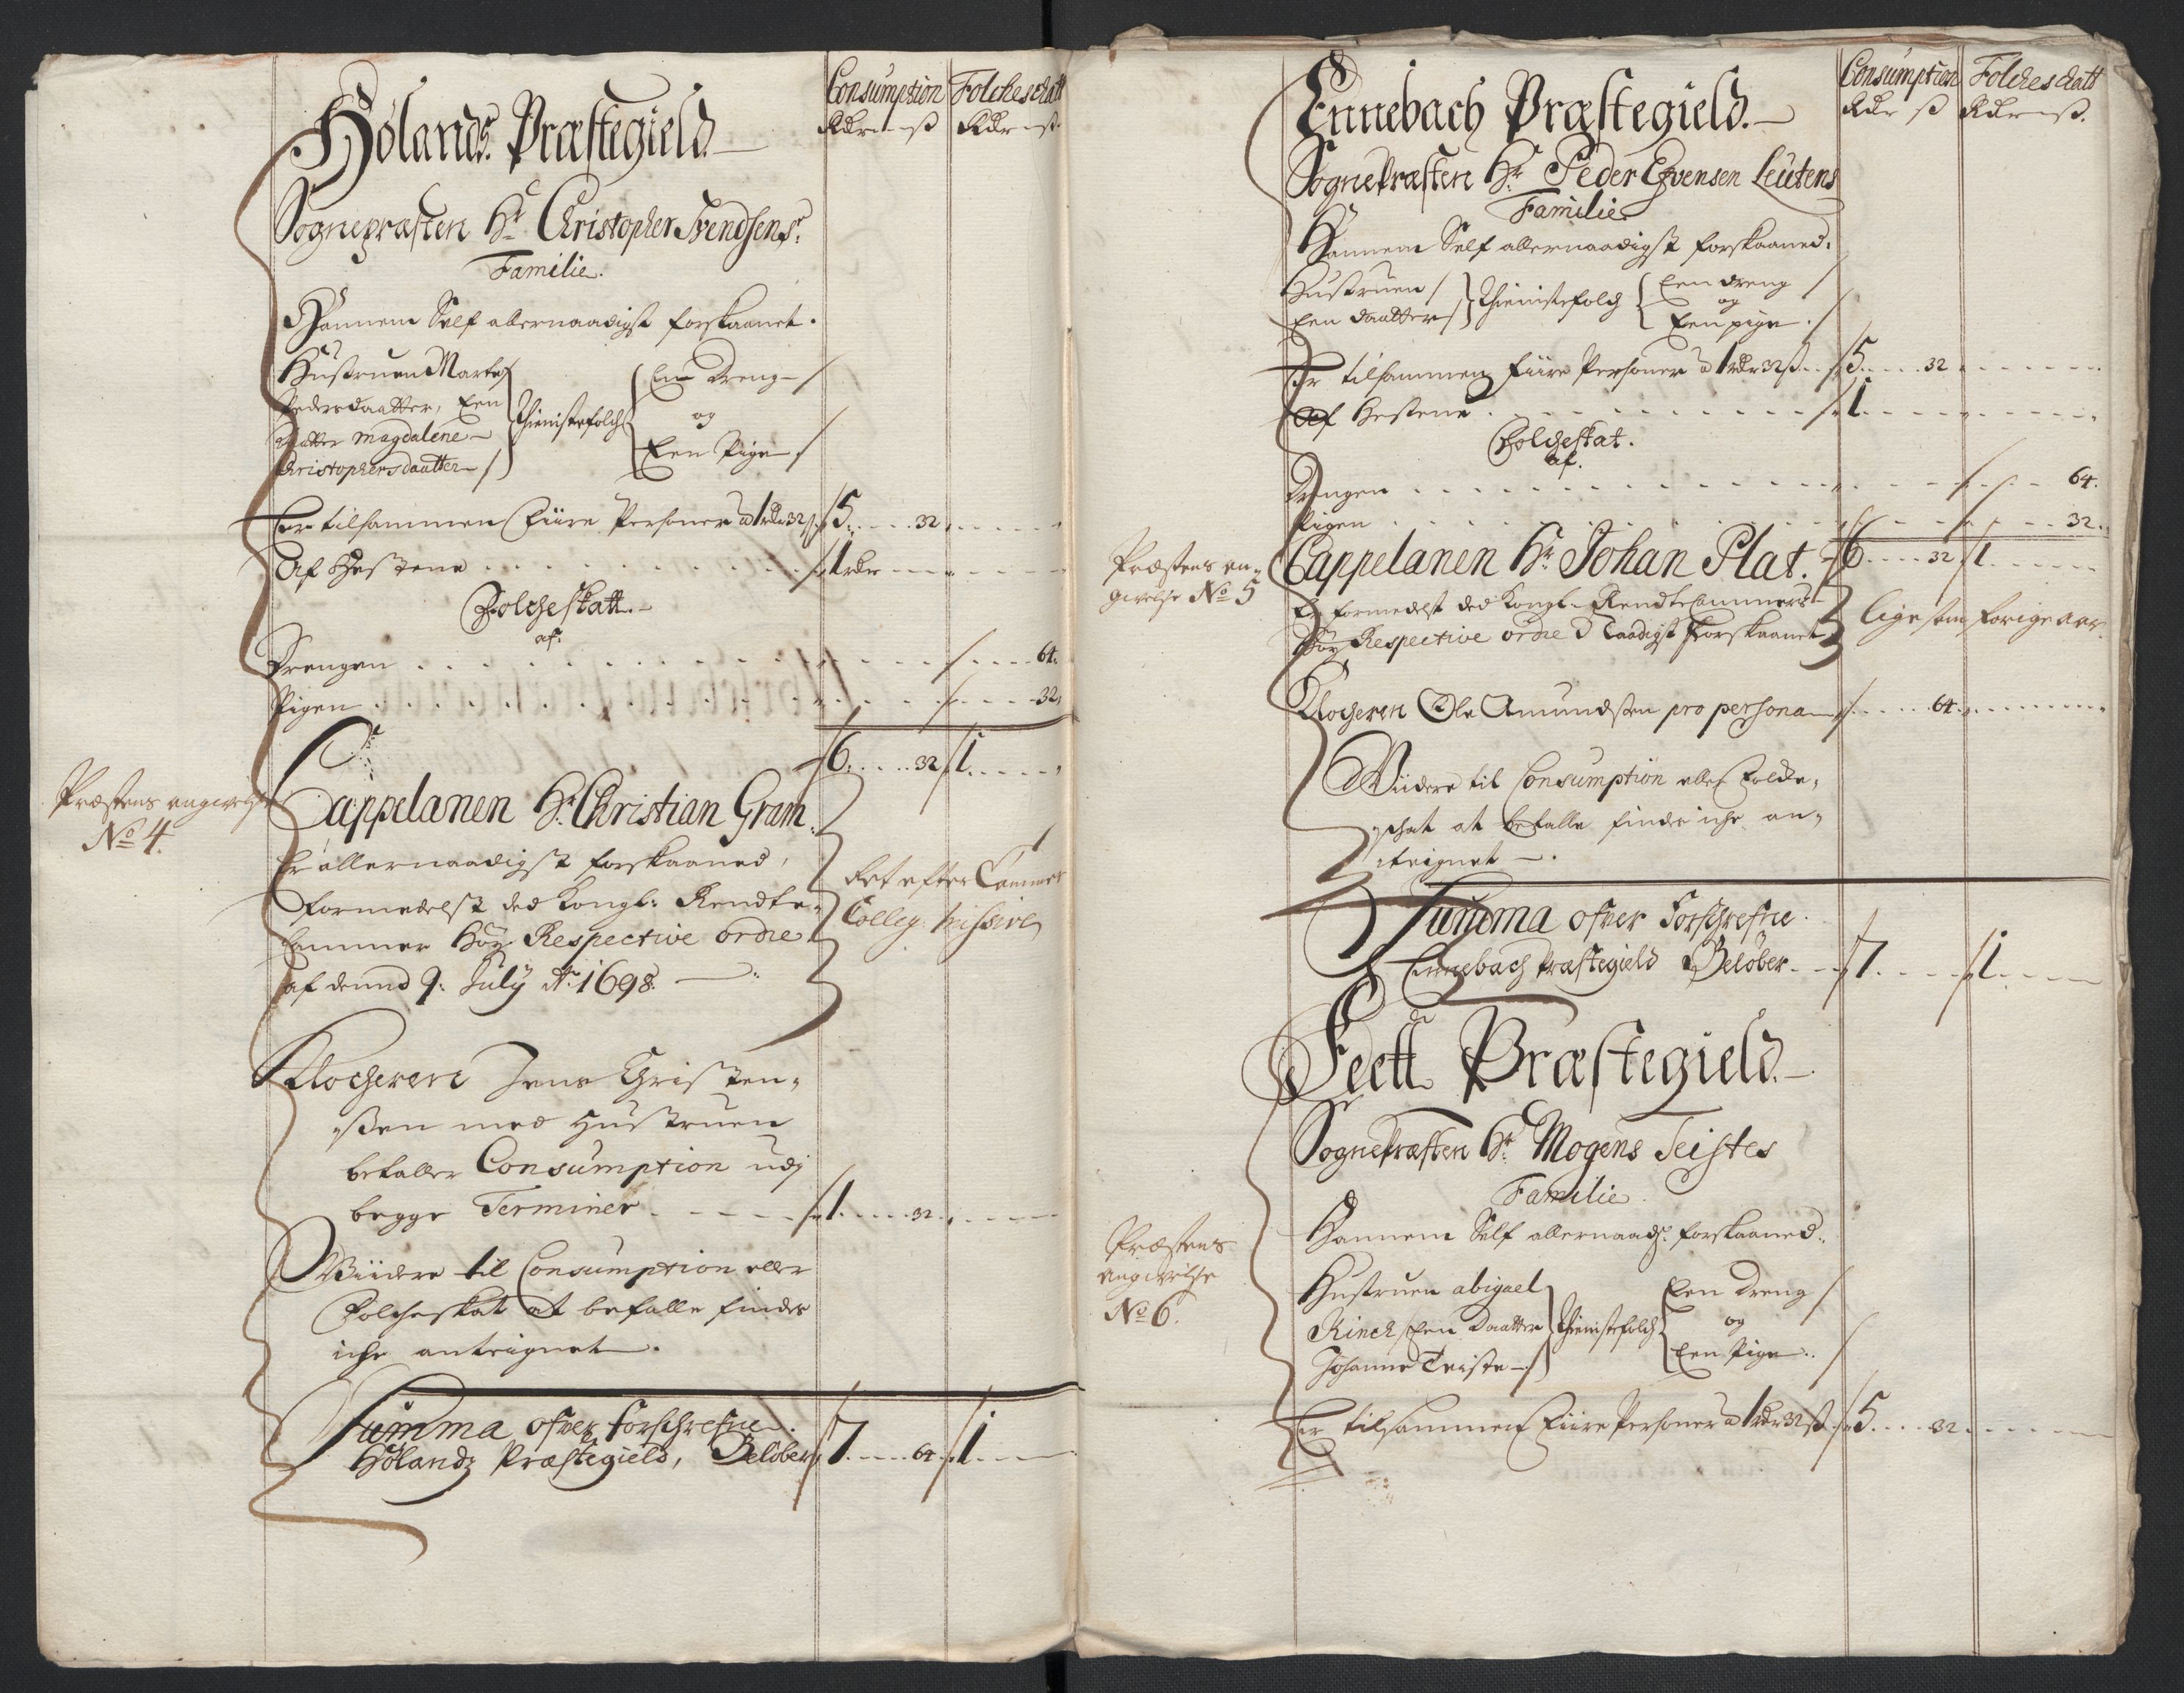 Consumption Folcheschatt
Rdr ß Rdr ß
Hølands Præstegield
Sognepræsten Hr Christopher Svendsens
Familie.
Hannem Self allernaadigst forskaanet.
Hustruen Marte
Pedersdaatter, Een
daatter Magdalene
Christophersdaatter
Thienistefolch
Een Dreng
og
Een Pige
Er tilsammen Fiire Personer a 1 rdr 32 ß 5 32
Af Hestene 1 rdr
Folcheskatt
af
Drengen 64.
Pigen 32.
6 32 1
Præstens angivelse
No 4.
Cappelanen Hr Christian Gram
Er allernaadigst forskaaned,
formedelst ded Kongl: Rendte
Cammer Høy Respective ordre
af dend 9: July Ao 1698.
Ret efter Cammer
Colleg: missive
Klocheren Jens Christen-
ßen med Hustruen
betaller Consumption udj
begge Terminer 1 32
Wiidere til Consumption eller
Folcheskat at befalle findes
iche anteignet.
Summa ofver forschrefne
Hølandz Præstegield, Beløber 7 64 1
Consumption Folcheschatt
Rdr ß Rdr ß.
Ennebach Præstegield.
Sognepræsten Hr Peder Evensen Leutens
Familie
Hannem Self allernaadigst forskaaned.
Hustruen
Een daatter
Thienistefolch
Een dreng
og
Een pige.
Er tilsammen Fiire Personer a 1 rdr 32 ß 5 32
Af Hestene 1
Folcheskat.
af.
Drengen 64.
Pigen 32.
Præstens an-
givelse No 5
Cappelanen Hr Johan Plat. 6 32 1
Er formedelst ded Kongl. RendteCammers
Høy Respective ordre Naadigst forskaanet
lige som forige aar.
Klocheren Ole Amundsen pro persona 64
Wiidere til Consumption eller Folche-
schat at betalle findes iche an-
teignet.
Summa ofver Forschrefne
Ennebach Præstegield Beløber 7 1
Feett Præstegield
Sognepræsten Hr Mogens Teistes
Familie.
Præstens
angivelse
No 6.
Hannem Self allernaadst. forskaaned.
Hustruen abigael
Rinch, Een Daatter
Johanne Teiste
Thienistefolch
Een Dreng
og
Een Pige.
Er tilsammen Fiire Personer a 1 rdr 32 ß 5 32